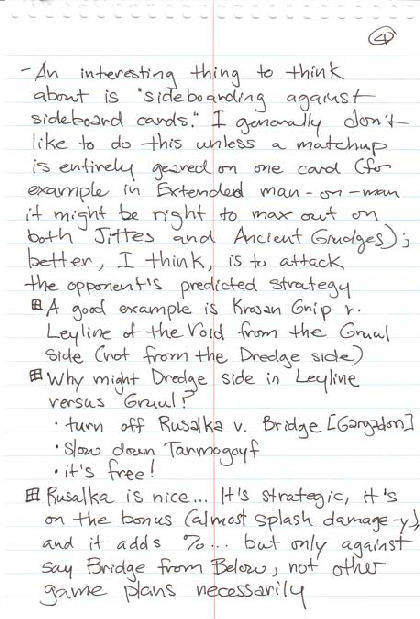 4
- An interesting thing to think
about is "sideboarding against
sideboard cards." I generally don't
like to do this unless a matchup
is entirely geared on one card (for
example in Extended man-on-man
it might be right to max out on
both Jittes and Ancient Grudges);
better, I think, is to attack
the opponent's predicted strategy
A good example is Krosan Grip v.
Leyline of the Void from the Gruul
side (not from the Dredge side)
Why might Dredge side in Leyline
versus Gruul?
· turn off Rusalka v. Bridge [Gargadon]
· Slow down Tarmogoyf
· it's free!
Rusalka is nice... It's strategic, it's
on the bonus (almost splash damage-y)
and it adds %... but only against
say Bridge from Below, not other
game plans necessarily